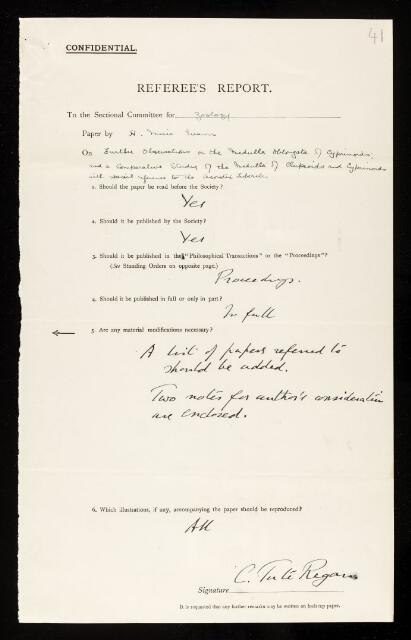 41
CONFIDENTIAL.
REFEREE'S REPORT.
To the Sectional Committee for Zoology
Paper by H. Muir Evans
On Further Observations on the Medulla Oblongata of Cyprinoids;
and a Comparative Study of the Medulla of Clupeoids and Cyprinoids
with special reference to the Acoustic Tubercle
1. Should the paper be read before the Society?
Yes
2. Should it be published by the Society?
Yes
3. Should it be published in the "Philosophical Transactions" or the "Proceedings"?
(See Standing Orders on opposite page.)
Proceedings.
4. Should it be published in full or only in part?
In full
5. Are any material modifications necessary?
A list of papers referred to
should be added.
Two notes for author's consideration
are enclosed.
6. Which illustrations, if any, accompanying the paper should be reproduced?
All
Signature C. Tate Regan
It is requested that any further remarks may be written on foolscap paper.